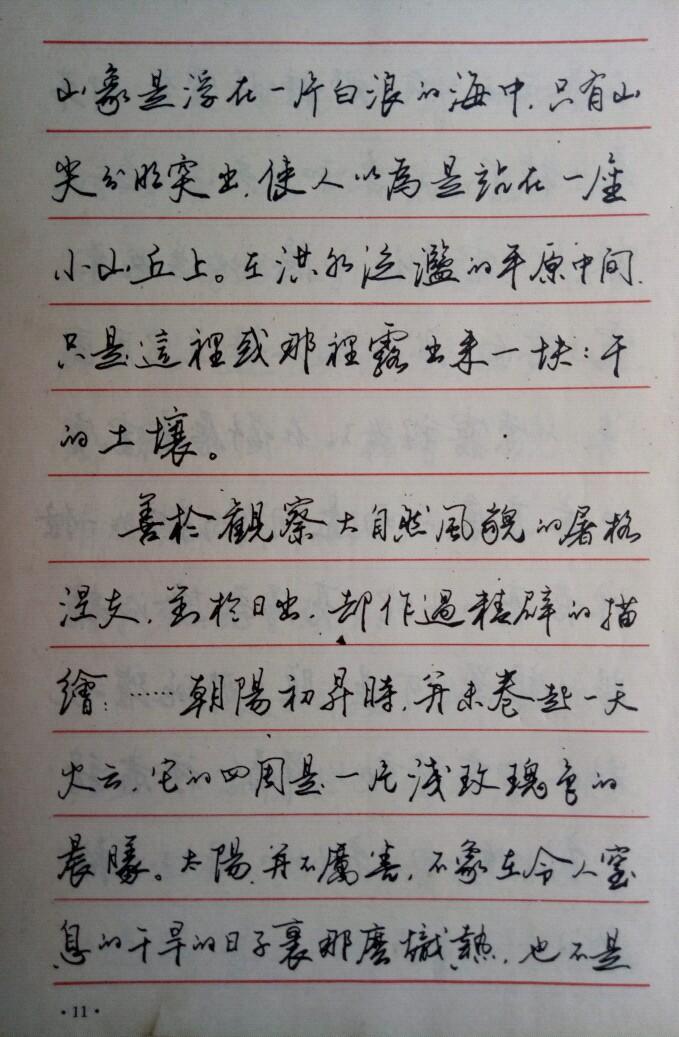 山象是浮在一片白浪的海中，只有山
尖分明突出，使人以為是站在一座
小山丘上。在洪水泛濫的平原中间，
只是這裡或那裡露出来一块：干
的土壤。
善於觀察大自然風貌的屠格
涅夫，對於日出，却作過精辟的描
繪：……朝陽初昇時，并未卷起一天
火云，它的四周是一片浅玫瑰色的
晨曦。太陽，并不厲害，不象在令人窒
息的干旱的日子裏那麽熾熱，也不是
·11·